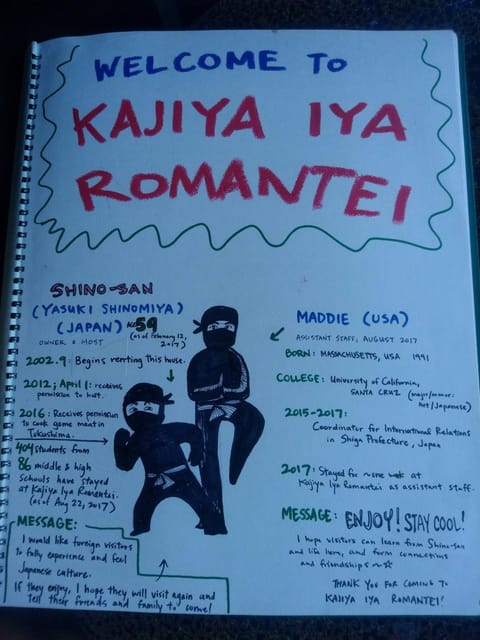 WELCOME TO
KAJIYA IYA
ROMANTEI
SHINO-SAN
(YASUKI SHINOMIYA)
(JAPAN) 59
(as of February 12,
2017)
OWNER & HOST
2002.9: Begins renting this house.
2012; April 1: receives
permission to hunt.
2016: Receives permission
to cook game meat in
Tokushima.
404 students from
86 middle & high
schools have stayed
at Kajiya Iya Romantei.
(as of Aug 22, 2017)
MESSAGE:
I would like foreign visitors
to fully experience and feel
Japanese culture.
If they enjoy, I hope they will visit again and
tell their friends and family to come!
MADDIE (USA)
ASSISTANT STAFF, AUGUST 2017
BORN: MASSACHUSETTS, USA 1991
COLLEGE: University of California,
SANTA CRUZ (major/minor:
Art/Japanese)
2015-2017:
Coordinator for International Relations
in Shiga Prefecture, Japan
2017: Stayed for one week at
Kajiya Iya Romantei as assistant staff.
MESSAGE: ENJOY! STAY COOL!
I hope visitors can learn from Shino-san
and life here, and form connections
and friendships ~☆
THANK YOU FOR COMING TO
KAJIYA IYA ROMANTEI!